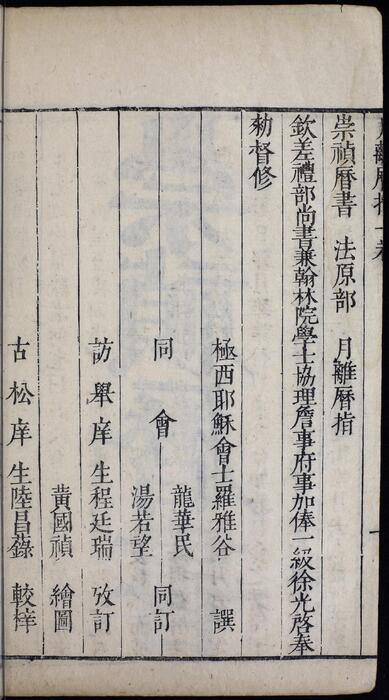 月離曆指一卷
崇禎曆書 法原部 月離曆指
欽差禮部尚書兼翰林院學士協理詹事府事加俸一級徐光啓奉
勑督修
極西耶穌會士羅雅谷 譔
龍華民
同會 同訂
湯若望
訪舉庠生程廷瑞 攷訂
黃國禎 繪圖
古松庠生陸昌籙 較梓